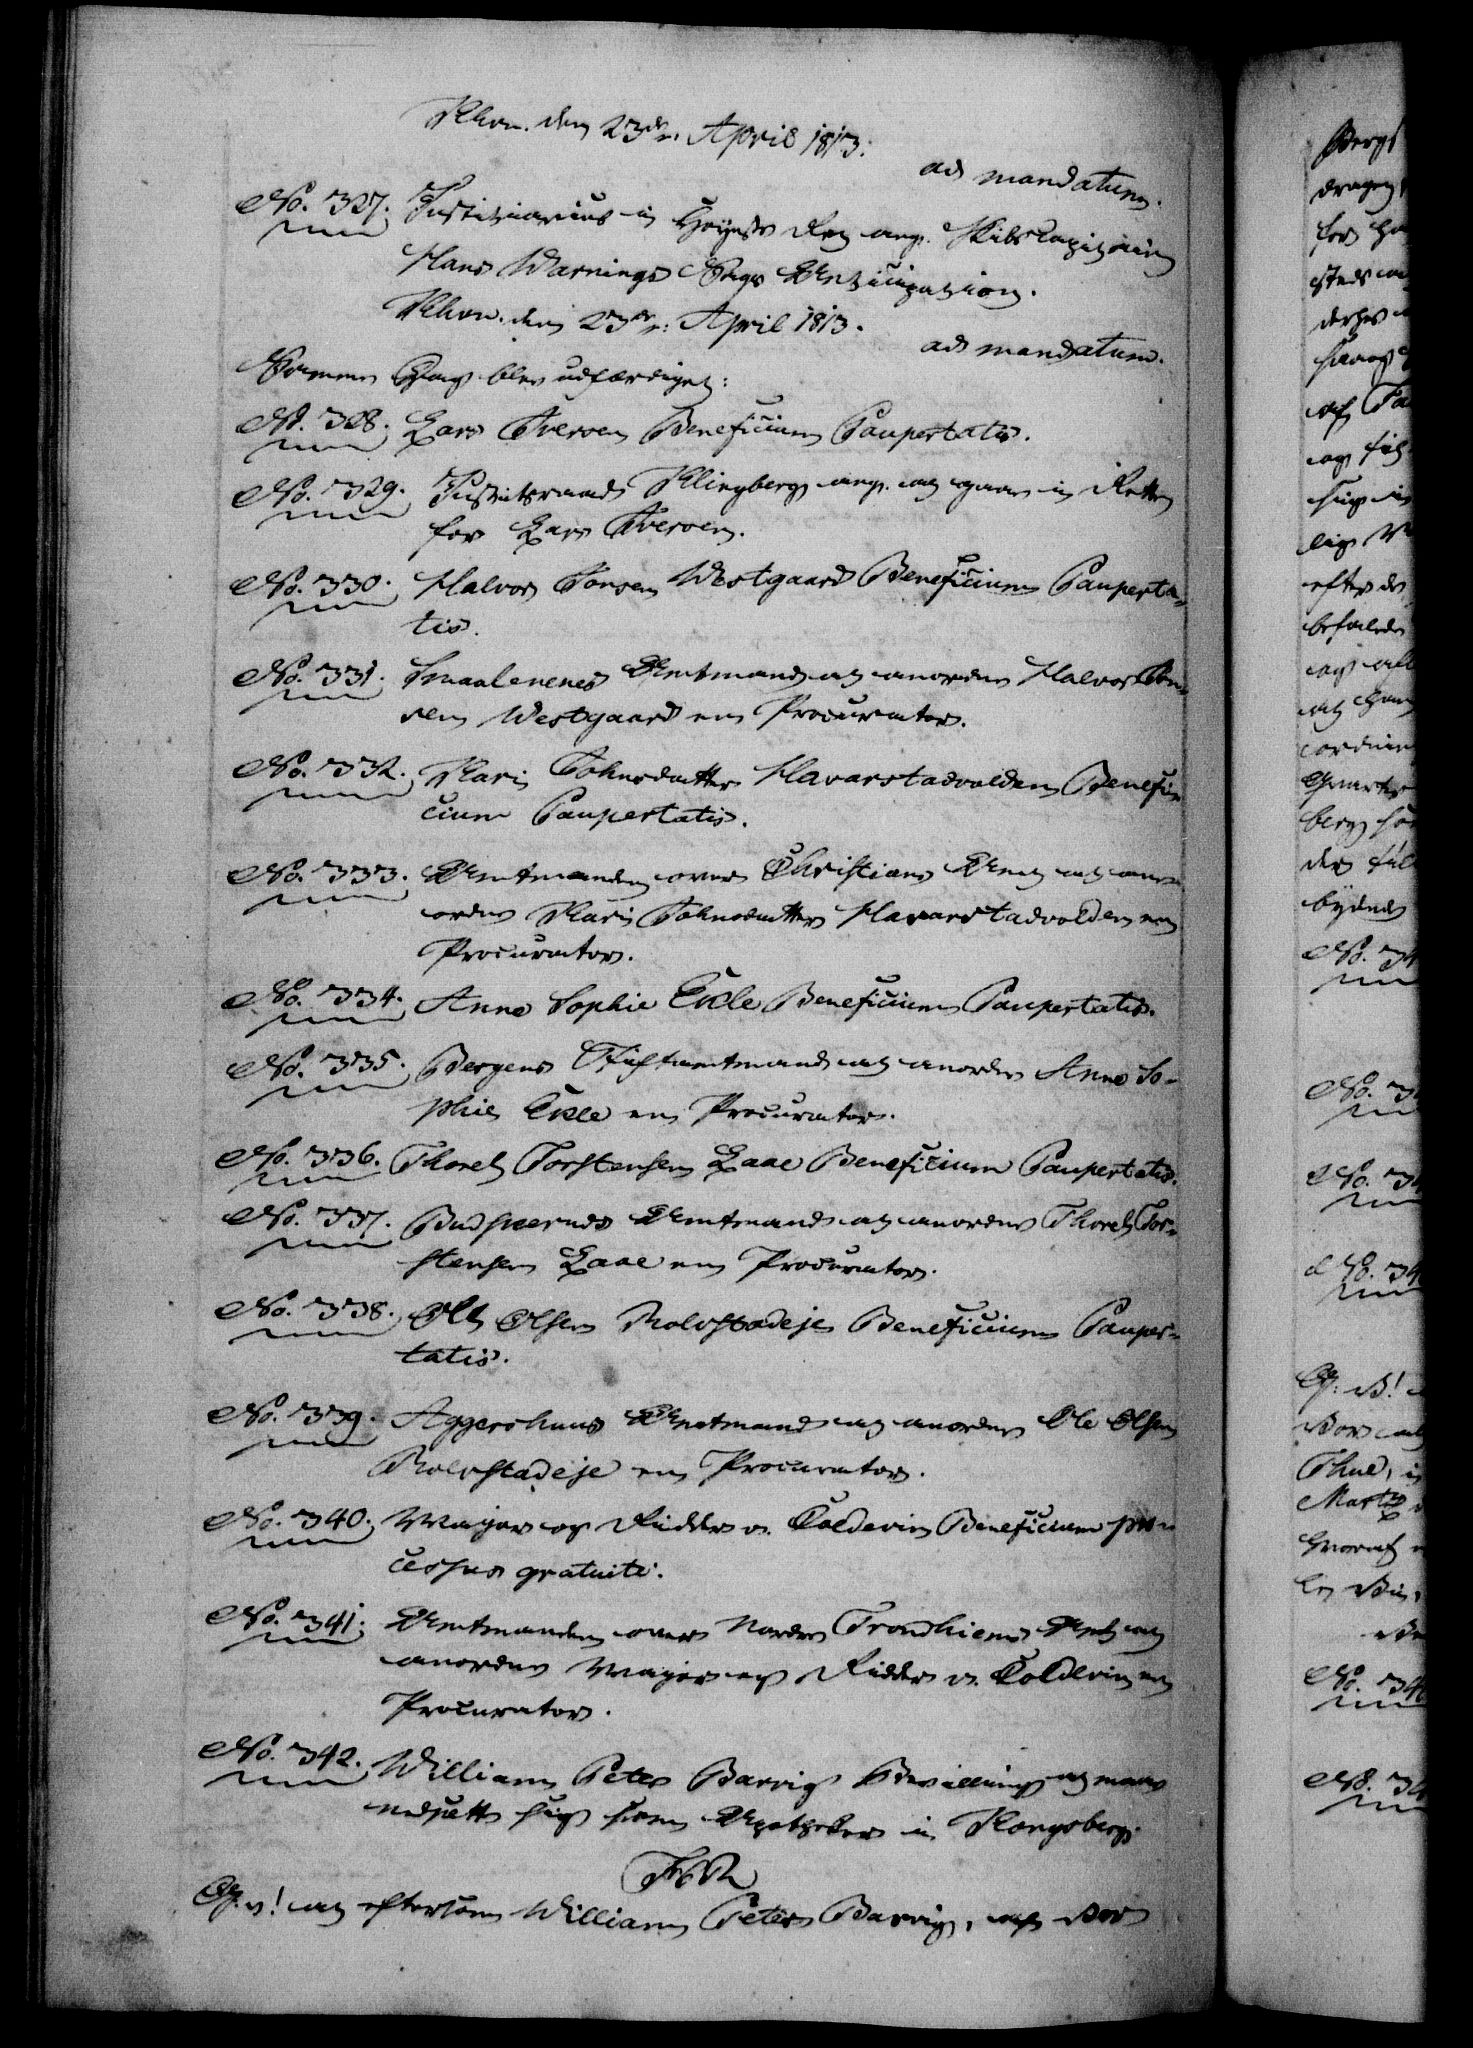 Khvn. den 23de April 1813.
ad mandatum.
No. 327. Justitiarius i Høyeste Ret ang. Skibscapitain
Hans Warnings Sags Anticipation.
Khvn. den 23de April 1813.
ad mandatum.
Samme Dag blev udfærdiget:
No. 328. Lars Iversen Beneficium Paupertatis.
No. 329. Justitsraad Klingberg ang. at gaae i Rette
for Lars Iversen.
No. 330. Halvor Torsen Westgaard Beneficium Pauperta-
tis.
No. 331. Smaalenenes Amtmand at anordne Halvor Tor-
sen Westgaard en Procurator.
No. 332. Kari Johnsdatter Havarstadvolden Benefi-
cium Paupertatis.
No. 333. Amtmanden over Christians Amt at an-
ordne Kari Johnsdatter Havarstadvolden en
Procurator.
No. 334. Anne Sophie Ekle Beneficium Paupertatis.
No. 335. Bergens Stiftamtmand at anordne Anne So-
phie Ekle en Procurator.
No. 336. Thorel Torstensen Laae Beneficium Paupertatis.
No. 337. Budskeruds Amtmand at anordne Thorel Tor-
stensen Laae en Procurator.
No. 338. Ole Olsen Rolvstadeje Beneficium Pauper-
tatis.
No. 339. Aggershuus Amtmand at anordne Ole Olsen
Rolvstadeje en Procurator.
No. 340. Major og Ridder v. Coldevin Beneficium pro-
cessus gratuiti.
No. 341. Amtmanden over Nordre Trondhiems Amt at
anordne Major og Ridder v. Coldevin en
Procurator.
No. 342. William Peter Barrig Bevilling at maae
nedsætte sig som Apotheker i Kongsberg.
F6R
G. v! at eftersom William Peter Barrig, af Vor